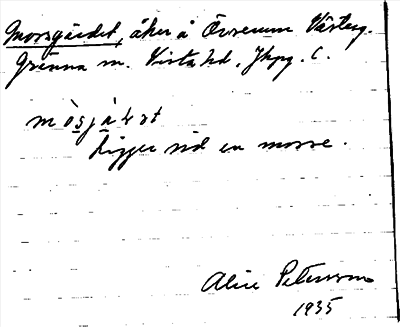 Mossgärdet, åker å Övrenum Västerg.
Gränna sn. Vista hd. Jkpg. l.
mòsjá̀ḷat
Ligger vid en mosse.
Alice Petersson
1935